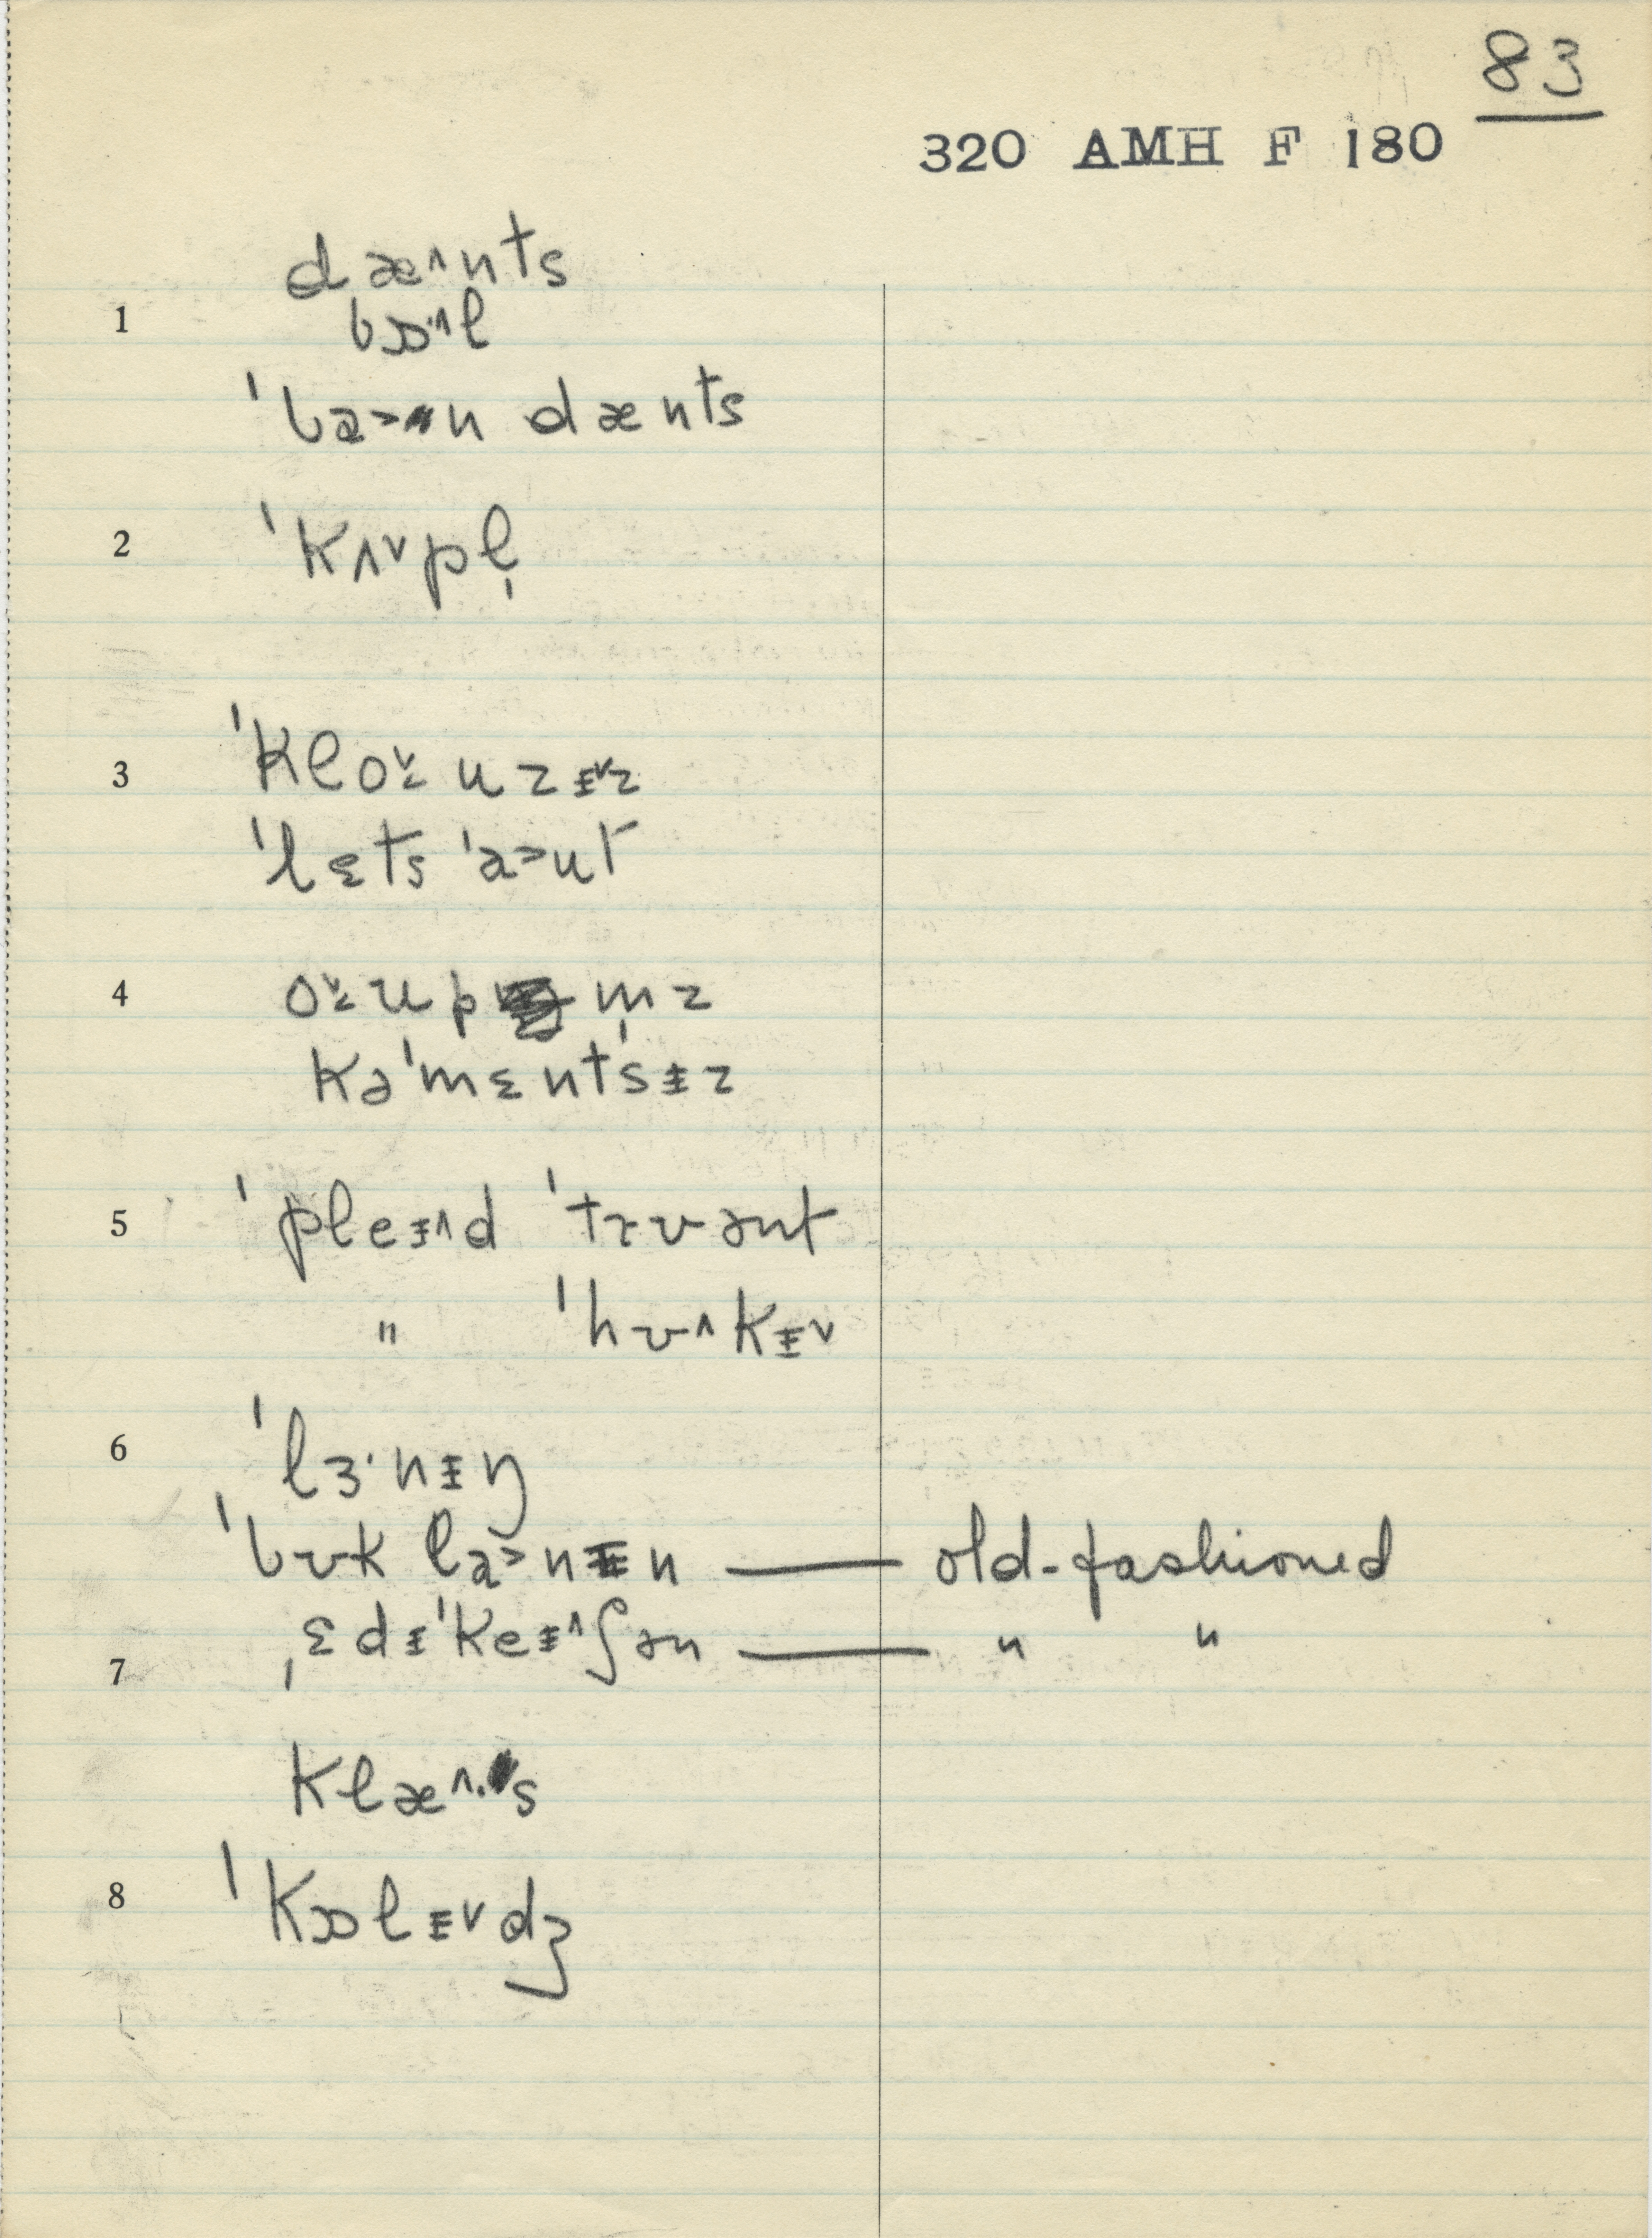 83
320 AMH F 180
dæ^nts
1 bɒ·^l
ˈba>n dænts
2 ˈkʌvpl̩
3 ˈkloʊ̌uzɨvz
ˈlɛts ˈa>ut
4 oʊ̌up m̩z
kəˈmɛntsɨz
5 ˈpleɨ^d ˈtrʊənt
" ˈhʊ^kɨv
6 ˈlɜ·nɨŋ
ˈbʊk la>nɨn — old-fashioned
7 ˌɛdɨˈkeɨ^ʃən — " "
klæ^·s
8 ˈkɒlɨvdʒ